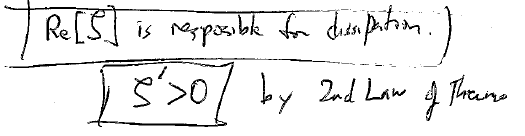 Re[ζ] is resposible for dissipation.
ζ' > 0 by 2nd Law of Thermo